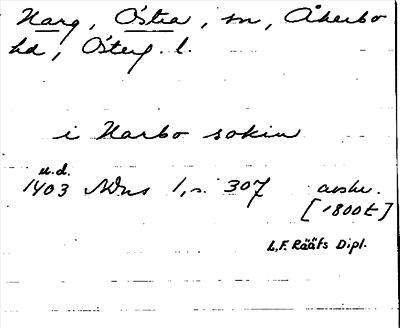 Harg, Östra, sn, Åkerbo
hd, Österg. l.
i Harbo sokin
u.d.
1403 MDns 1, s. 307 avskr.
[1800t]
L.F. Rääfs Dipl.